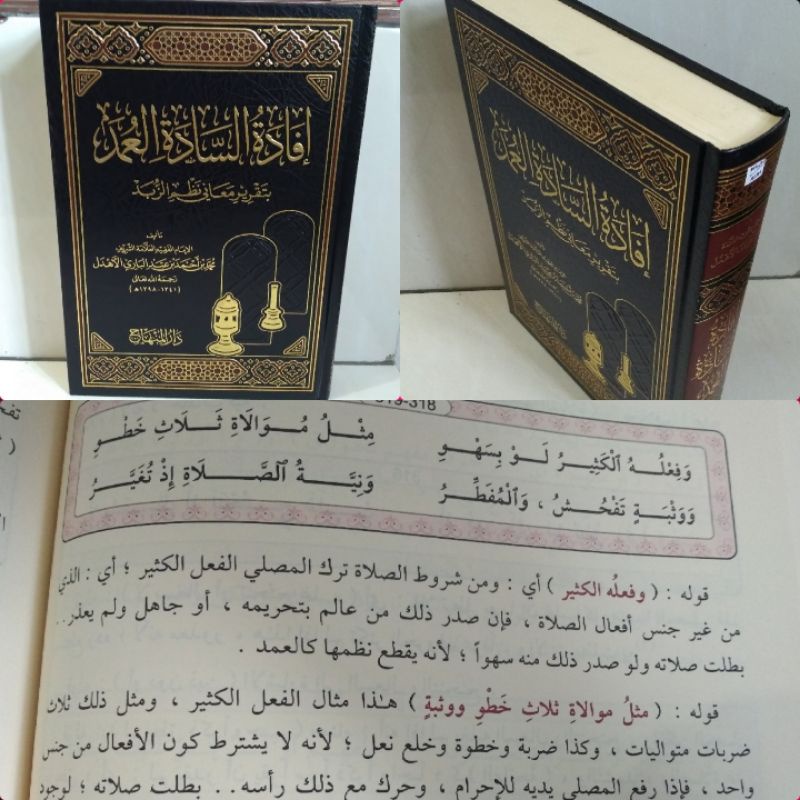 إفادة السادة العمد
بتقرير معاني نظم الزبد
تأليف
الإمام الفقيه العلامة الشريف
محمد بن أحمد بن عبد الباري الأهدل
رحمه الله تعالى
(١٢٤١-١٢٩٨هـ)
دار المنهاج
إفادة السادة العمد
بتقرير معاني نظم الزبد
319-318
وَفِعْلُهُ ٱلْكَثِيرُ لَوْ بِسَهْوِ مِثْلُ مُوَالَاةِ ثَلَاثِ خَطْوِ
وَوَثْبَةٍ تَفْحُشُ ، وَٱلْمُفَطِّرُ وَنِيَّةُ ٱلصَّلَاةِ إِذْ تُغَيَّرُ
قوله : ( وفعلُه الكثير ) أي : ومن شروط الصلاة ترك المصلي الفعل الكثير ؛ أي : الذي
من غير جنس أفعال الصلاة ، فإن صدر ذلك من عالم بتحريمه ، أو جاهل ولم يعذر..
بطلت صلاته ولو صدر ذلك منه سهواً ؛ لأنه يقطع نظمها كالعمد .
قوله : ( مثلُ موالاةِ ثلاثِ خَطْوِ ووثبةٍ ) هـٰذا مثال الفعل الكثير ، ومثل ذلك ثلاث
ضربات متواليات ، وكذا ضربة وخطوة وخلع نعل ؛ لأنه لا يشترط كون الأفعال من جنس
واحد ، فإذا رفع المصلي يديه للإحرام ، وحرك مع ذلك رأسه.. بطلت صلاته ؛ لوجود